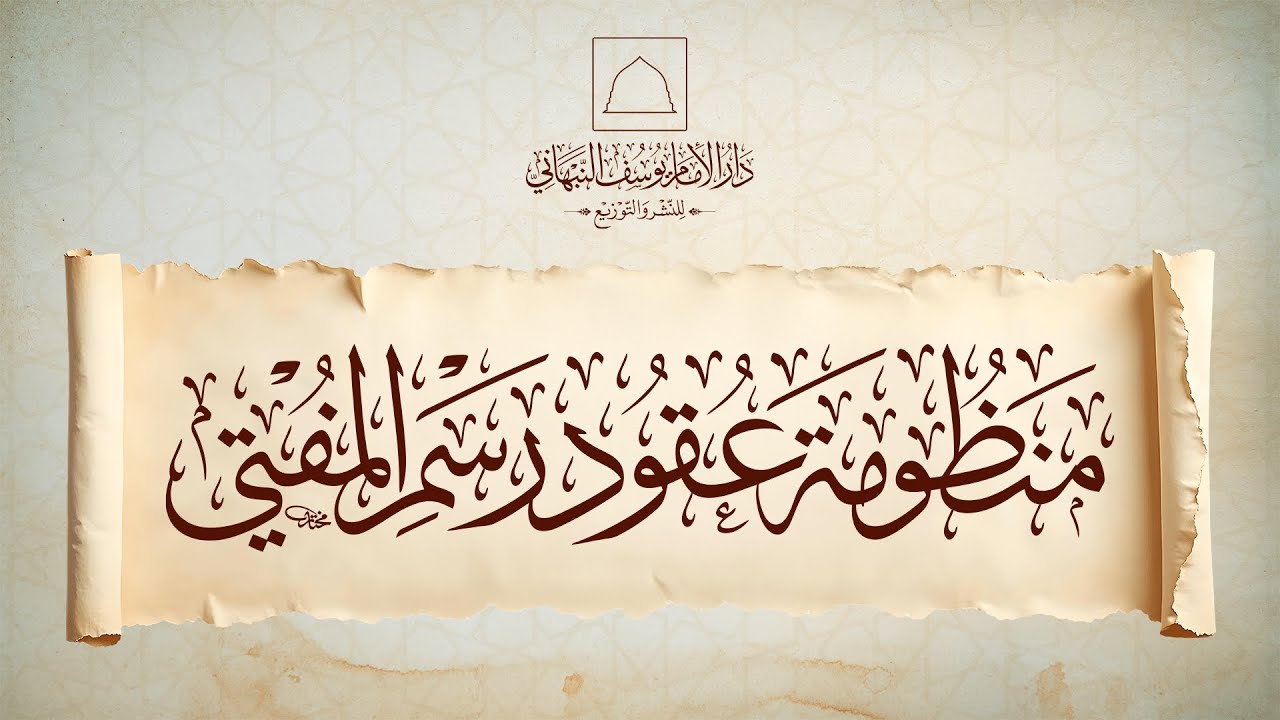 دَارُ الإِمَامِ يُوسُفَ النَّبْهَانِيِّ
لِلنَّشْرِ وَالتَّوْزِيعِ
مَنْظُومَة عُقُود رَسْمِ المُفْتِي
مختار